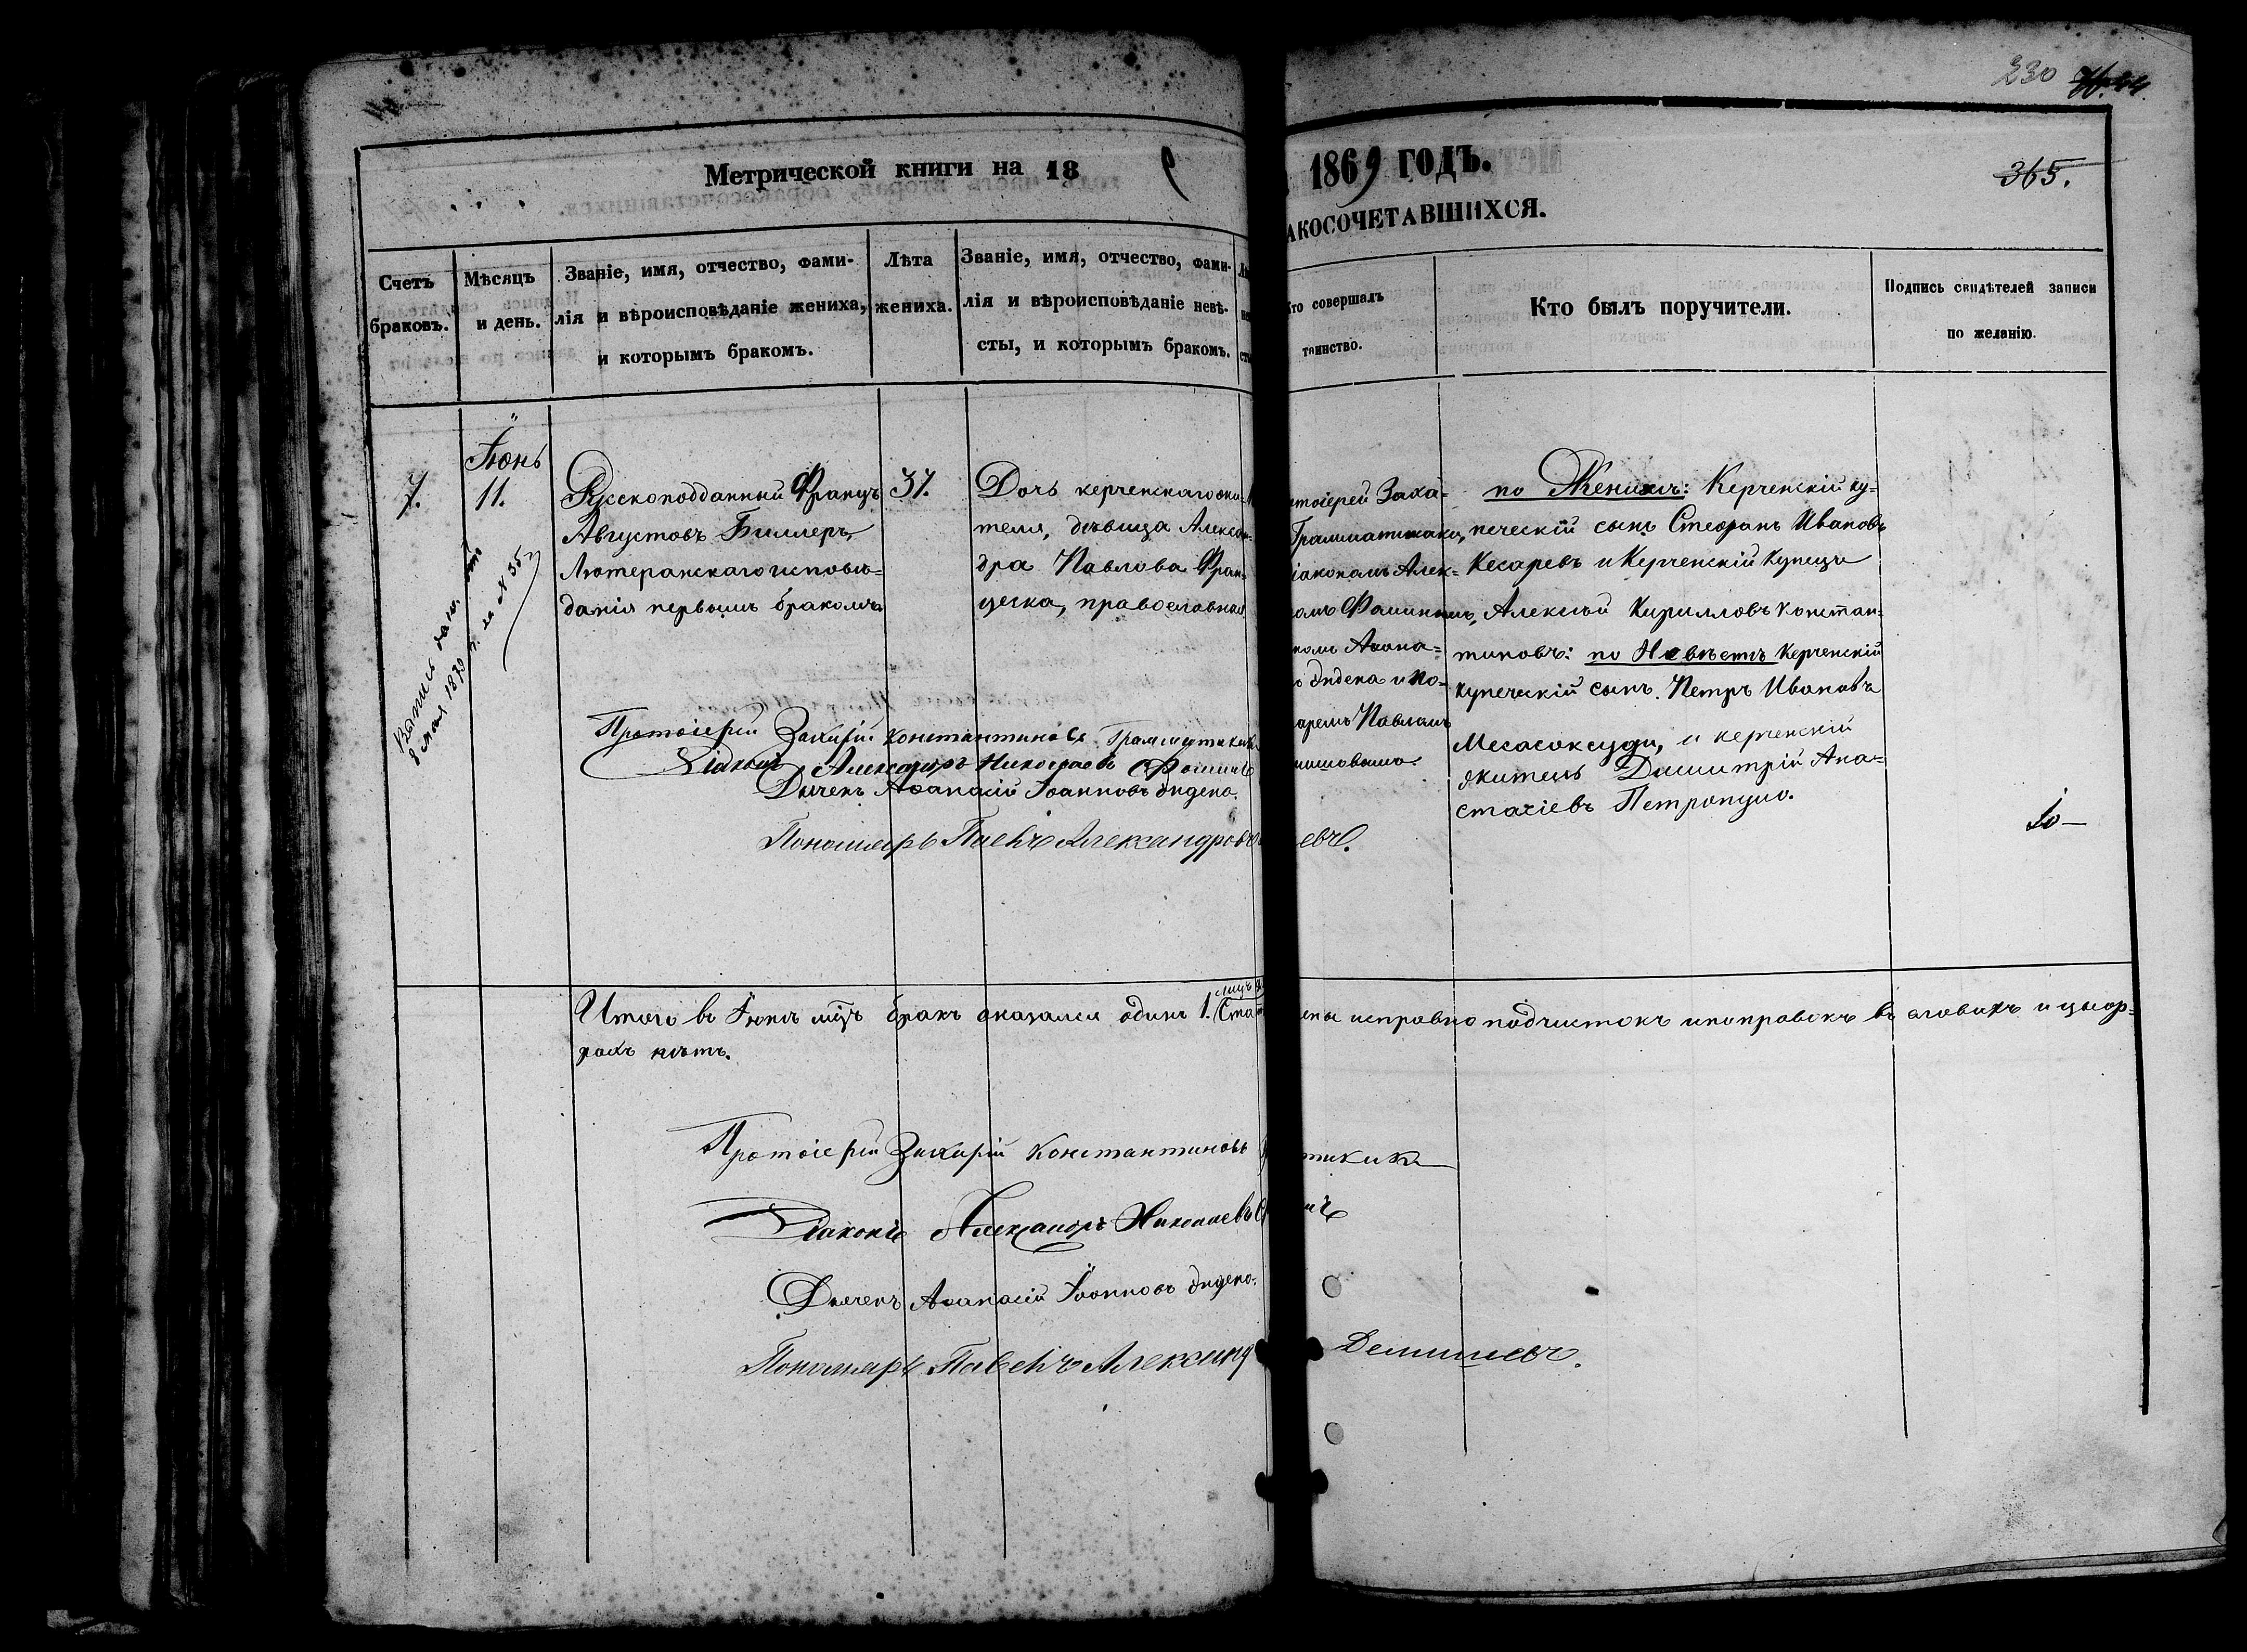 230
365.
Метрической книги на 18
1869 ГОДЪ.
АКОСОЧЕТАВШИХСЯ.
Счетъ
браковъ.
Мѣсяцъ
и день.
Званіе, имя, отчество, фами-
лія и вѣроисповѣданіе жениха,
и которымъ бракомъ.
Лѣта
жениха.
Званіе, имя, отчество, фами-
лія и вѣроисповѣданіе невѣ-
сты, и которымъ бракомъ.
то совершалъ
таинство.
Кто былъ поручители.
Подпись свидѣтелей записи
по желанію.
7.
Іюнь
11.
Францъ
Августовъ Биллеръ,
Лютеранскаго исповѣ=
данія первымъ бракомъ
37.
Дочь керченскаго жи-
теля, дѣвица Алексан-
дра Павлова Фран-
цеска, православная
тоіерей Заха=
Грамматикаки,
іакономъ Алек-
омъ Фоминымъ,
комъ Афана=
дидена и По-
аремъ Павломъ
по Женихѣ: Керченскій ку=
печескій сынъ Стефанъ Ивановъ
Кесаревъ и Керченскій купецъ
Алексѣй Кирилловъ Констан=
тиновъ: по Невѣстѣ Керченскій
купеческій сынъ Петръ Ивановъ
Месаксуди, и керченскій
житель Димитрій Ана=
стасіевъ Петропуло.
8 мая 1870 г. за № 35
Протоіерей Захарій Константиновъ Грамматикаки
Діаконъ Александръ Николаевъ Фоминъ
Дьячекъ Афанасій Іоанновъ дидено.
Пономарь Павелъ Александровъ
евъ.
Итого въ Іюнѣ мцѣ бракъ оказался одинъ 1.
исправно подчистокъ и поправокъ въ словахъ и циф-
рахъ нѣтъ.
Протоіерей Захарій Константиновъ
тикаки
Діаконъ Александръ Николаевъ
Дьячекъ Афанасій Іоанновъ дидено.
Пономарь Павелъ Александ
Демишевъ.